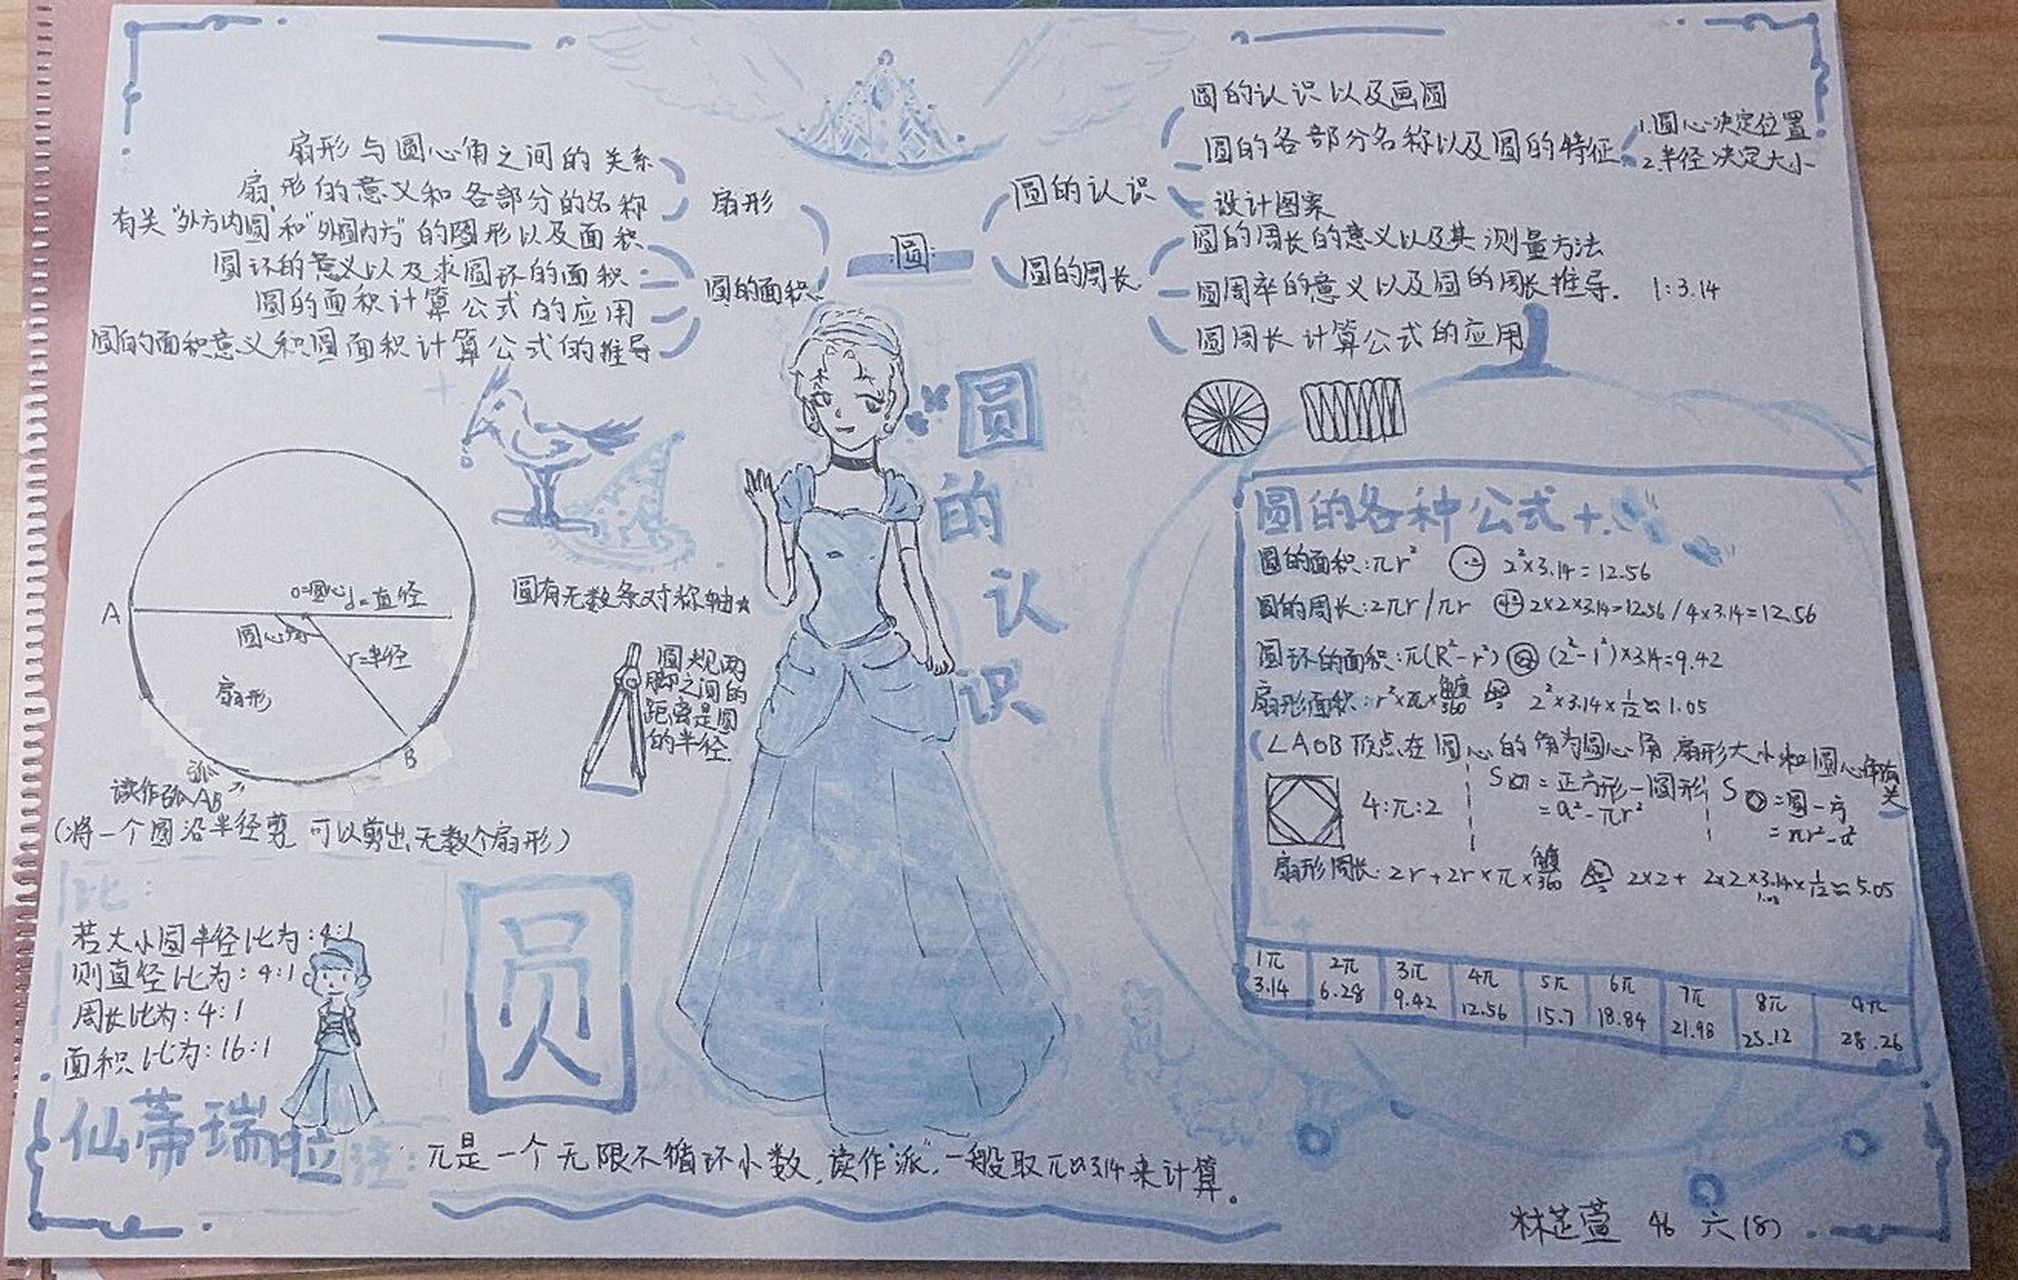 扇形与圆心角之间的关系
扇形的意义和各部分的名称
扇形
有关"外方内圆"和"外圆内方"的图形以及面积
圆环的意义以及求圆环的面积
圆的面积计算公式的应用
圆的面积意义和圆面积计算公式的推导
圆的面积
圆
圆的认识
圆的周长
圆的认识以及画圆
圆的各部分名称以及圆的特征
1.圆心决定位置
2.半径决定大小
设计图案
圆的周长的意义以及其测量方法
圆周率的意义以及圆的周长推导. 1:3.14
圆周长计算公式的应用
圆的认识
A
o=圆心
d=直径
圆心角
r=半径
扇形
B
弧
读作弧AB
(将一个圆沿半径剪 可以剪出无数个扇形)
圆有无数条对称轴
圆规两
脚之间的
距离是圆
的半径.
比:
若大小圆半径比为:4:1
则直径比为:4:1
周长比为:4:1
面积比为:16:1
仙蒂瑞拉
圆
注:π是一个无限不循环小数,读作"派".一般取π≈3.14来计算。
圆的各种公式+.
圆的面积:πr² 2²×3.14=12.56
圆的周长:2πr/πr 2×2×3.14=12.56/4×3.14=12.56
圆环的面积:π(R²-r²) (2²-1²)×3.14=9.42
扇形面积:r²×π×角度/360 2²×3.14×1/12≈1.05
(∠AOB顶点在圆心的角为圆心角 扇形大小和圆心角有关
4:π:2
S=正方形-圆形
=a²-πr²
S=圆-方
=πr²-a²
扇形周长:2r+2r×π×角度/360 2×2+2×2×3.14×1/12≈5.05
1.05
1π 2π 3π 4π 5π 6π 7π 8π 9π
3.14 6.28 9.42 12.56 15.7 18.84 21.98 25.12 28.26
林芷萱 46 六(8)